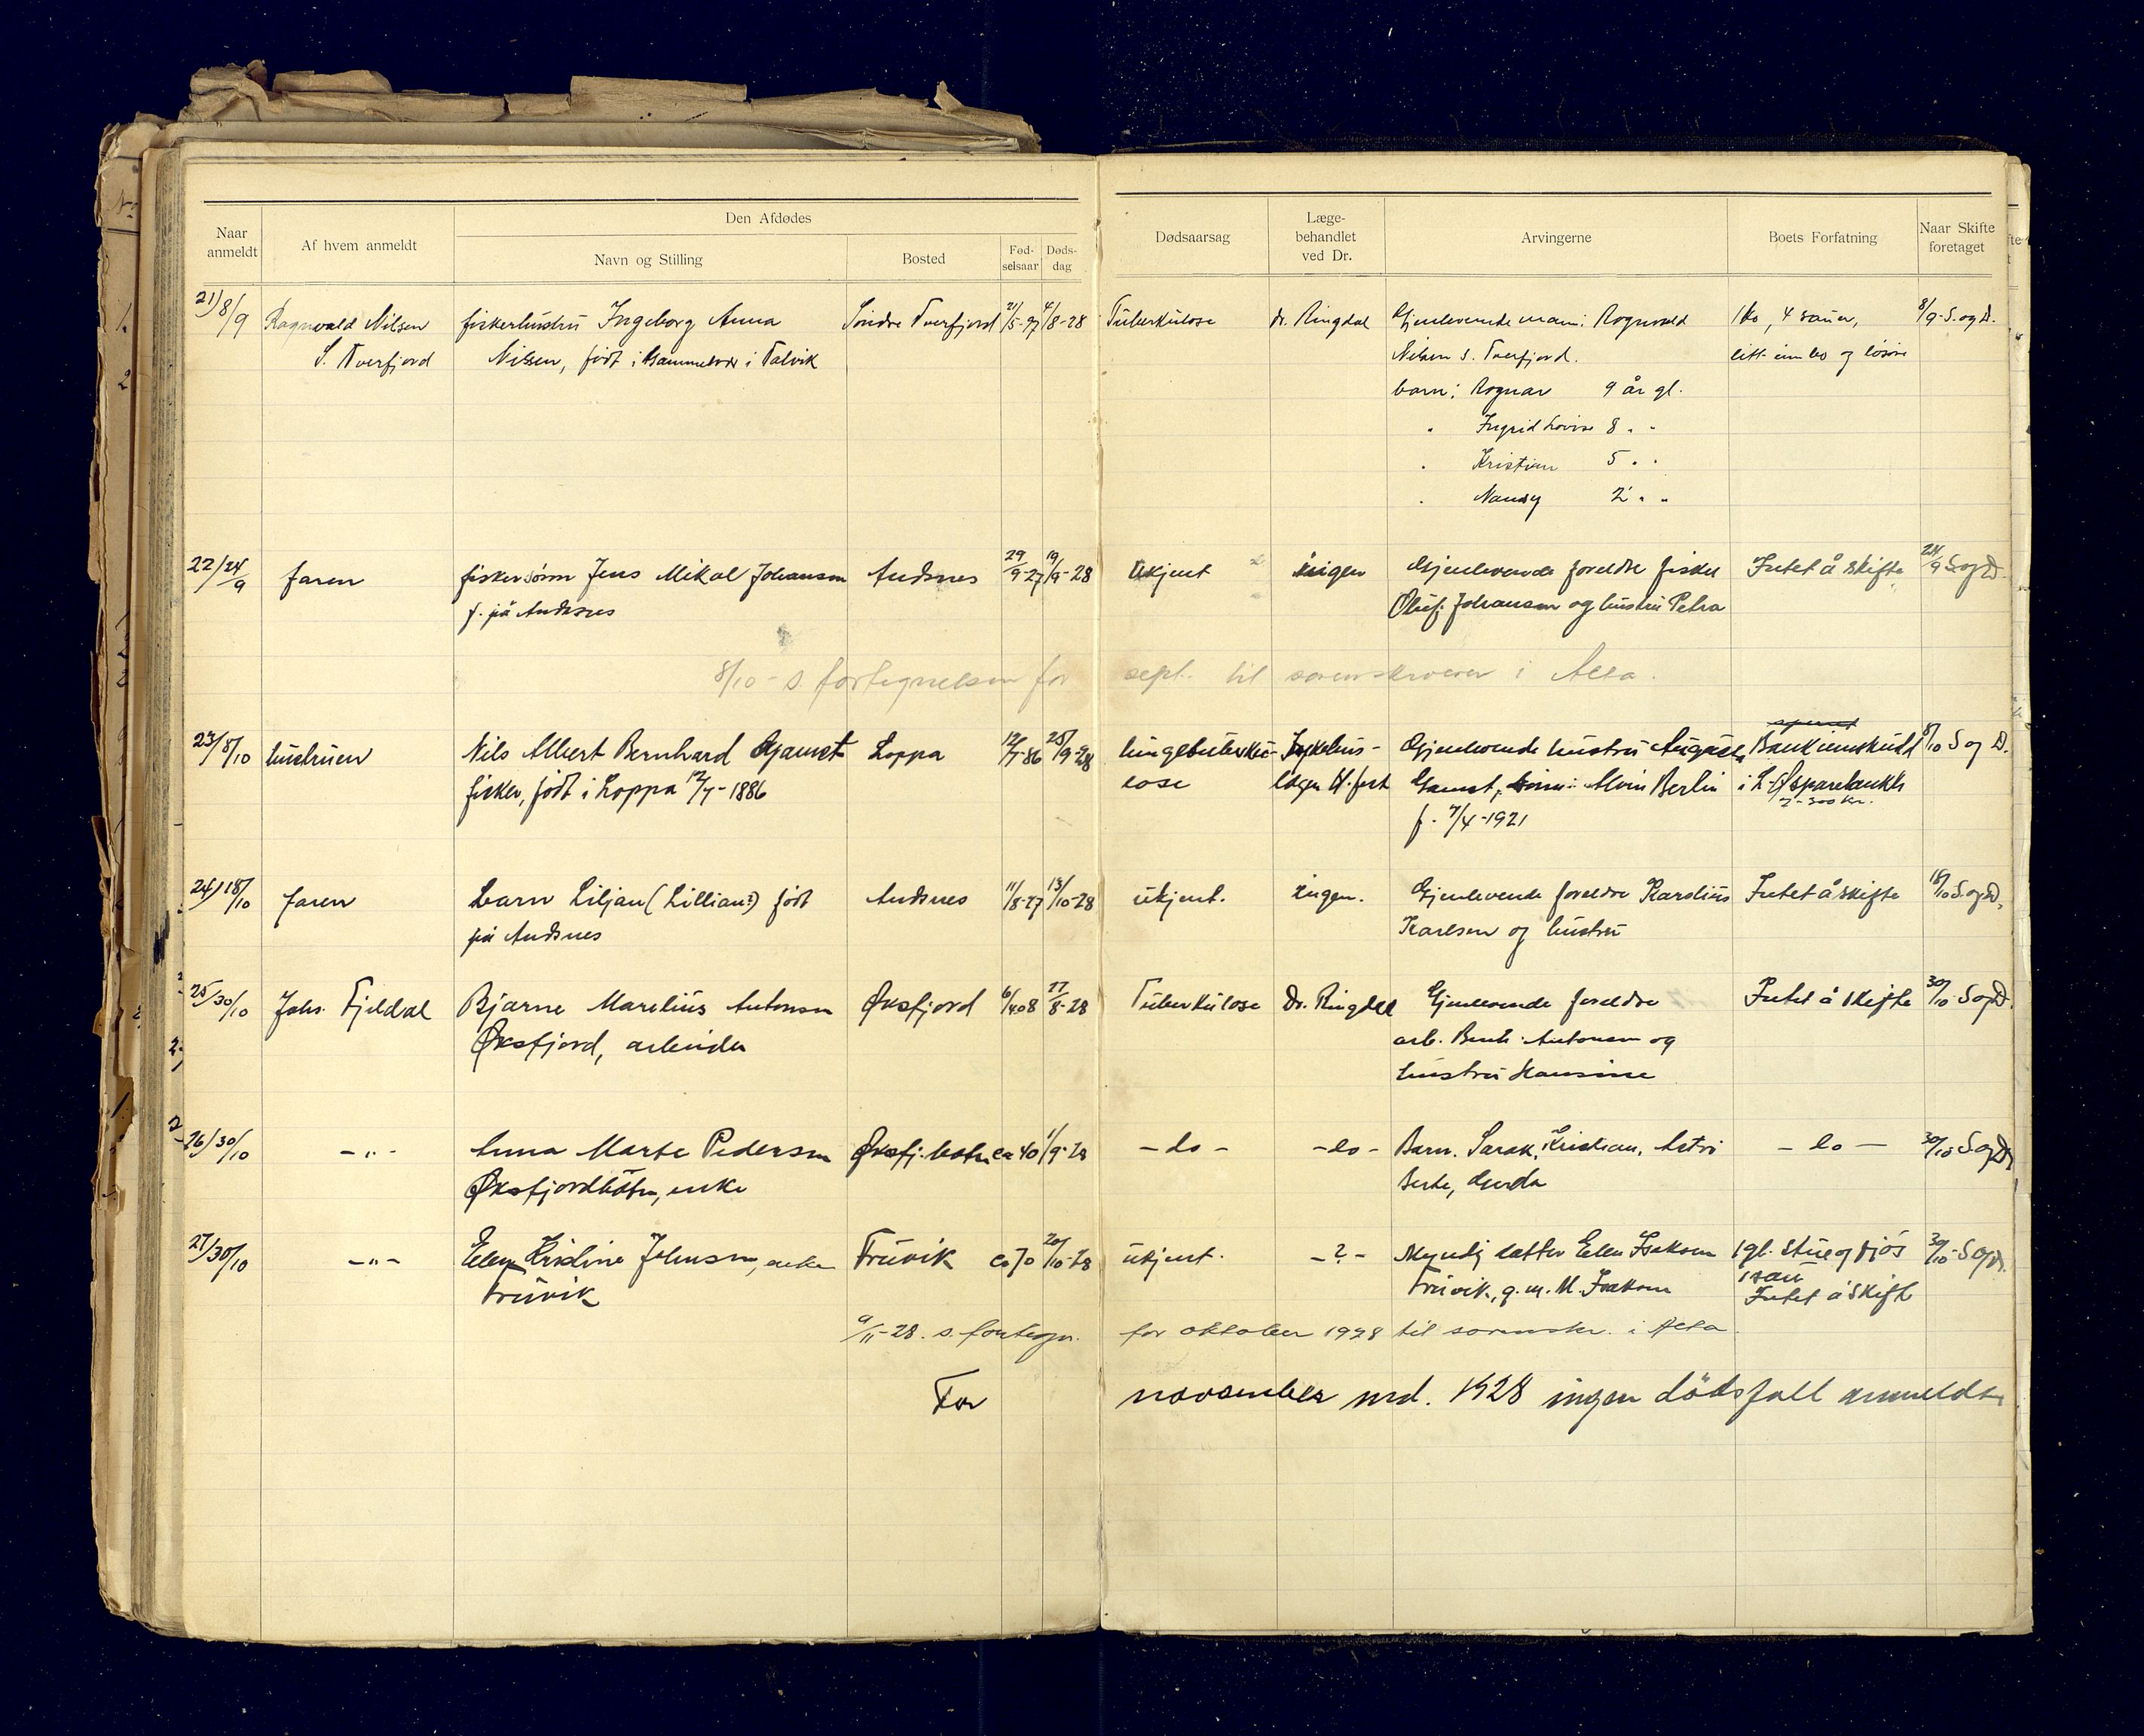 Naar anmeldt
Af hvem anmeldt
Den Afdødes
Navn og Stilling
Bosted
Fød-selsaar
Døds-dag
Dødsaarsag
Læge-behandlet ved Dr.
Arvingerne
Boets Forfatning
Naar Skifte foretaget
21) 8/9 Ragnvald Nilsen fiskerhustru Ingeborg Anna Søndre Tverfjord 21/5-97 4/8-28 Tuberkulose dr. Ringdal Gjenlevende mann: Ragnvald 1 ko, 4 sauer, 8/9-S.ogD.
S. Tverfjord Nilsen, født i i Talvik Nilsen S. Tverfjord. litt innbo og løsøre
barn: Ragnar 9 år gl.
" Ingrid Lovise 8 " "
" Kristian 5 " "
" Nansy 2 " "
22/24/9 faren fiskersønn Jens Mikal Johansen Andsnes 29/9-27 19/9-28 Ukjent ingen Gjenlevende foreldre fisker Intet å skifte 24/9 S.ogD.
f. på Andsnes Oluf Johansen og hustru Petra
8/10- s. fortegnelsen for sept. til sorenskriveren i Alta.
23/8/10 hustruen Nils Albert Bernhard Gamst Loppa 12/7-86 25/9-28 lungetuberku- Sykehus- Gjenlevende hustru Bankinnskudd 8/10 S og D.
fisker, født i Loppa 12/7-1886 lose lægen H.fest Gamst, Alvin Berlin i sparebank
f. 7/4-1921
24) 18/10 faren barn Liljan (Lillian?) født Andsnes 11/8-27 13/10-28 ukjent. ingen. Gjenlevende foreldre Karolius Intet å skifte 18/10 S.ogD.
på Andsnes Karlsen og hustru
25/30/10 Johs. Fjeldal Bjarne Marelius Antonsen Øksfjord 6/4 08 27/8-28 Tuberkulose Dr. Ringdal Gjenlevende foreldre Intet å skifte 30/10-S ogD.
Øksfjord, arbeider arb. Antonsen og
hustru Hansine
26/30/10 -"- Anna Marte Pedersen Øksfj.botn ca 40 1/9-28 -do- -do- Barn. Sarak, Kristian, -do- 30/10 S ogD.
Øksfjordbotn, enke Berte, Gerda
27/30/10 -"- Ellen Kristine Johnsen, enke Truvik ca 70 20/10-28 ukjent. -?- Myndig datter Ellen Isaksen 1 gl. stue og fjøs 30/10-S ogD.
Truvik Truvik, g.m. M. Isaksen 1 sau
Intet å skifte
9/11-28. s. fortegn. for oktober 1928 til sorenskr. i Alta.
For november md. 1928 ingen dödsfall anmeldt